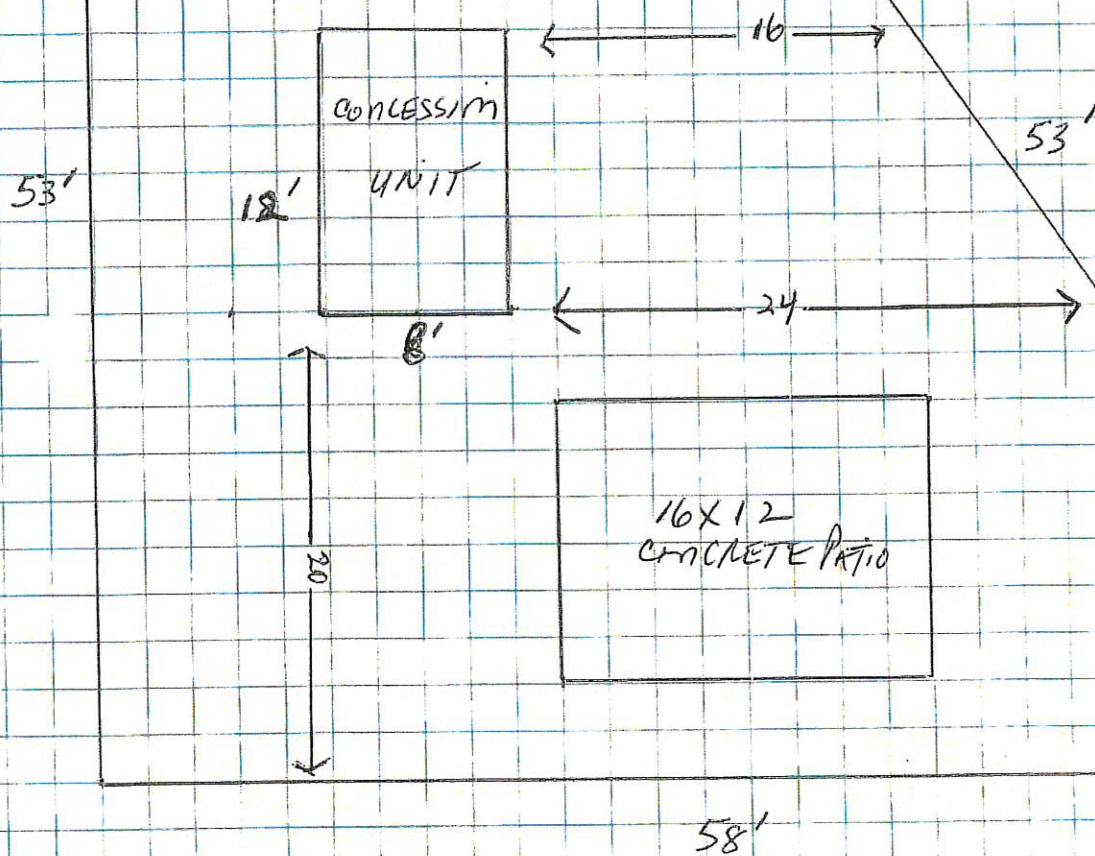 16
CONCESSION
UNIT
53'
53'
12'
24
8'
20
16X12
CONCRETE PATIO
58'